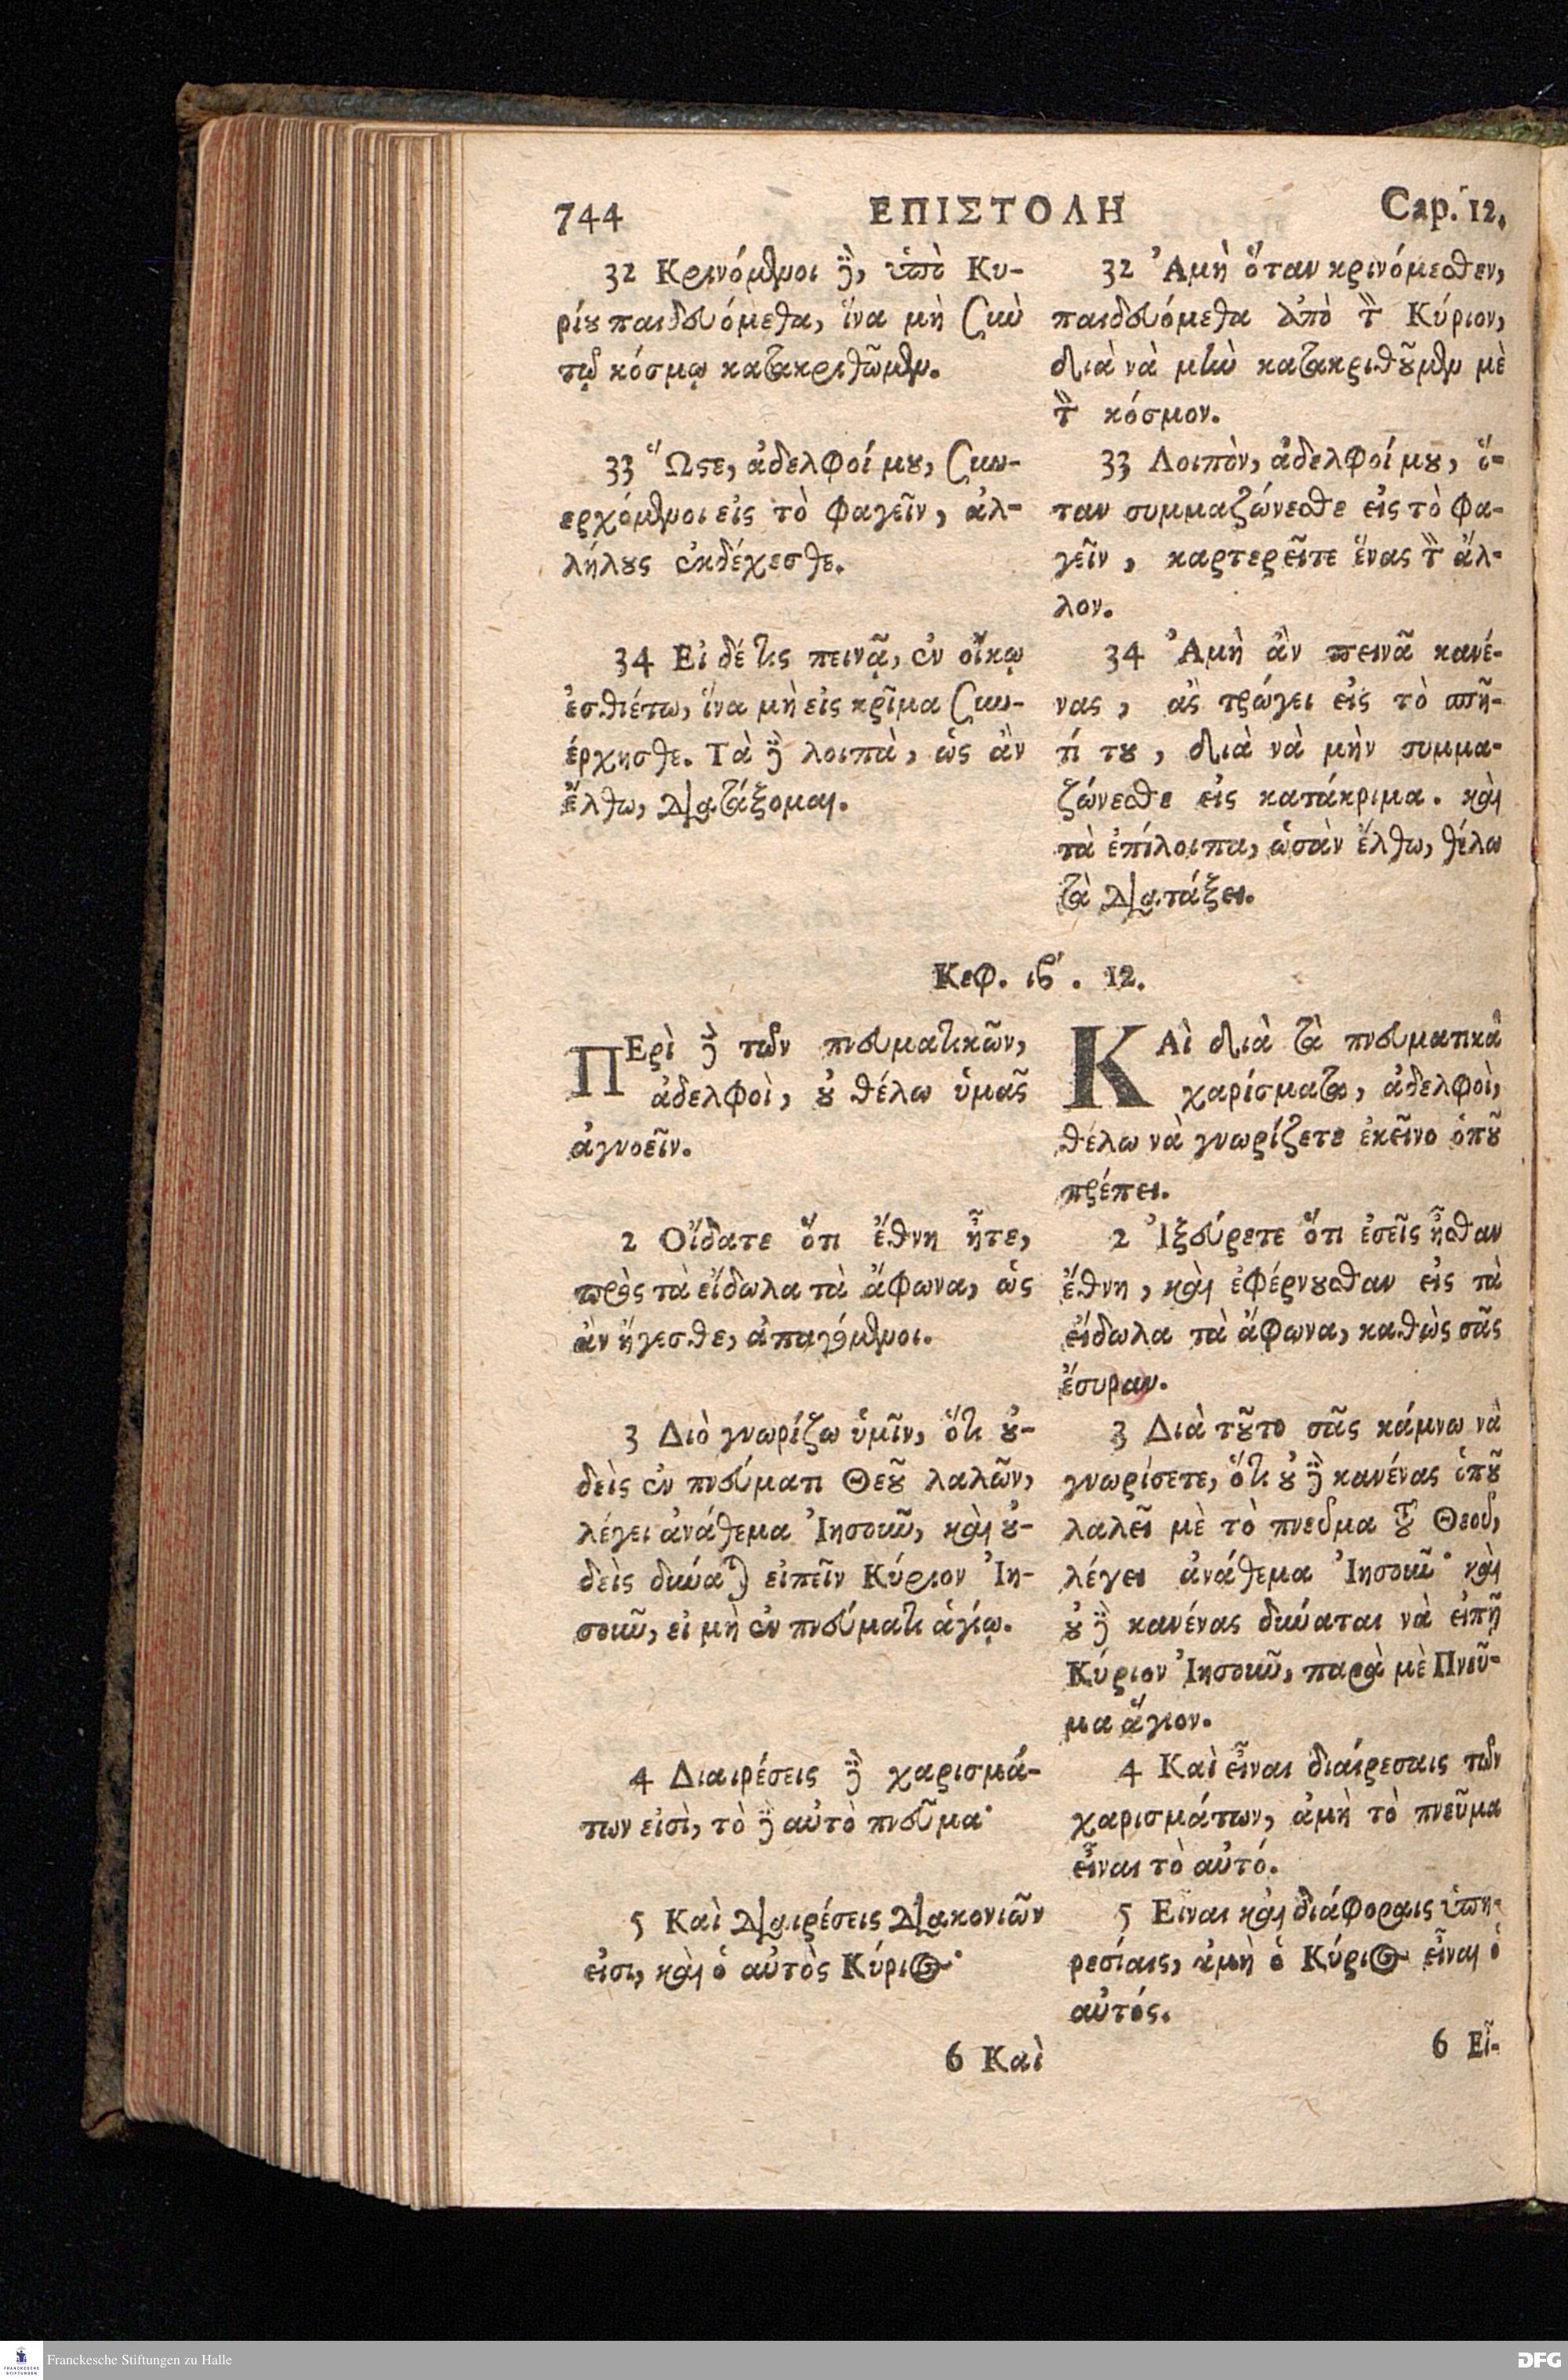 744 ΕΠΙΣΤΟΛΗ Cap. 12.
32 Κρινόμϸμοι δὲ, ὑπὸ Κυ-
ρίȣ παιδευόμεθα, ἵνα μὴ σὺν
τῷ κόσμῳ κατακριθῶμεν.
33 Ὥστε, ἀδελφοί μȣ, συν-
ερχόμενοι εἰς τὸ φαγεῖν, ἀλ-
λήλȣς ἐκδέχεσθε.
34 Εἰ δέ τις πεινᾷ, ἐν οἴκῳ
ἐσθιέτω, ἵνα μὴ εἰς κρῖμα συν-
έρχησθε. Τὰ δὲ λοιπὰ, ὡς ἂν
ἔλθω, διατάξομαι.
32 Ἀμὴ ὅταν κρινόμεσθεν,
παιδευόμεθα ἀπὸ τὸν Κύριον,
διὰ νὰ μὴν κατακριθȣ͂μεν μὲ
τὸν κόσμον.
33 Λοιπὸν, ἀδελφοί μȣ, ὅ-
ταν συμμαζώνεσθε εἰς τὸ φα-
γεῖν, καρτερεῖτε ἕνας τὸν ἄλ-
λον.
34 Ἀμὴ ἂν πεινᾶ κανέ-
νας, ἂς τρώγει εἰς τὸ σπῆ-
τί τȣ, διὰ νὰ μὴν συμμα-
ζώνεσθε εἰς κατάκριμα. καὶ
τὰ ἐπίλοιπα, ὡσὰν ἔλθω, θέλω
τὰ διατάξει.
Κεφ. ιβʹ. 12.
ΠΕρὶ δὲ τῶν πνευματικῶν,
ἀδελφοὶ, ȣ̓ θέλω ὑμᾶς
ἀγνοεῖν.
2 Οἴδατε ὅτι ἔθνη ἦτε,
πρὸς τὰ εἴδωλα τὰ ἄφωνα, ὡς
ἂν ἤγεσθε, ἀπαγόμενοι.
3 Διὸ γνωρίζω ὑμῖν, ὅτι ȣ̓-
δεὶς ἐν πνεύματι Θεȣ͂ λαλῶν,
λέγει ἀνάθεμα Ἰησοῦν, καὶ ȣ̓-
δεὶς δύναται εἰπεῖν Κύριον Ἰη-
σοῦν, εἰ μὴ ἐν πνεύματι ἁγίῳ.
4 Διαιρέσεις δὲ χαρισμά-
των εἰσὶ, τὸ δὲ αὐτὸ πνεῦμα·
5 Καὶ διαιρέσεις διακονιῶν
εἰσι, καὶ ὁ αὐτὸς Κύριος·
6 Καὶ
ΚΑὶ διὰ τὰ πνευματικὰ
χαρίσματα, ἀδελφοὶ,
θέλω νὰ γνωρίζετε ἐκεῖνο ὁπȣ͂
πρέπει.
2 Ἰξεύρετε ὅτι ἐσεῖς ἦσθαν
ἔθνη, καὶ ἐφέρνȣσθαν εἰς τὰ
εἴδωλα τὰ ἄφωνα, καθὼς σᾶς
ἔσυραν.
3 Διὰ τȣ͂το σᾶς κάμνω νὰ
γνωρίσετε, ὅτι ȣ̓δὲ κανένας ὁπȣ͂
λαλεῖ μὲ τὸ πνεῦμα τȣ͂ Θεοῦ,
λέγει ἀνάθεμα Ἰησοῦν· καὶ
ȣ̓δὲ κανένας δύναται νὰ εἰπῇ
Κύριον Ἰησοῦν, παρὰ μὲ Πνεῦ-
μα ἅγιον.
4 Καὶ εἶναι διαίρεσαις τῶν
χαρισμάτων, ἀμὴ τὸ πνεῦμα
εἶναι τὸ αὐτό.
5 Εἶναι καὶ διάφοραις ὑπη-
ρεσίαις, ἀμὴ ὁ Κύριος εἶναι ὁ
αὐτός.
6 Εἶ-
FRANCKESCHE STIFTUNGEN
Franckesche Stiftungen zu Halle
DFG